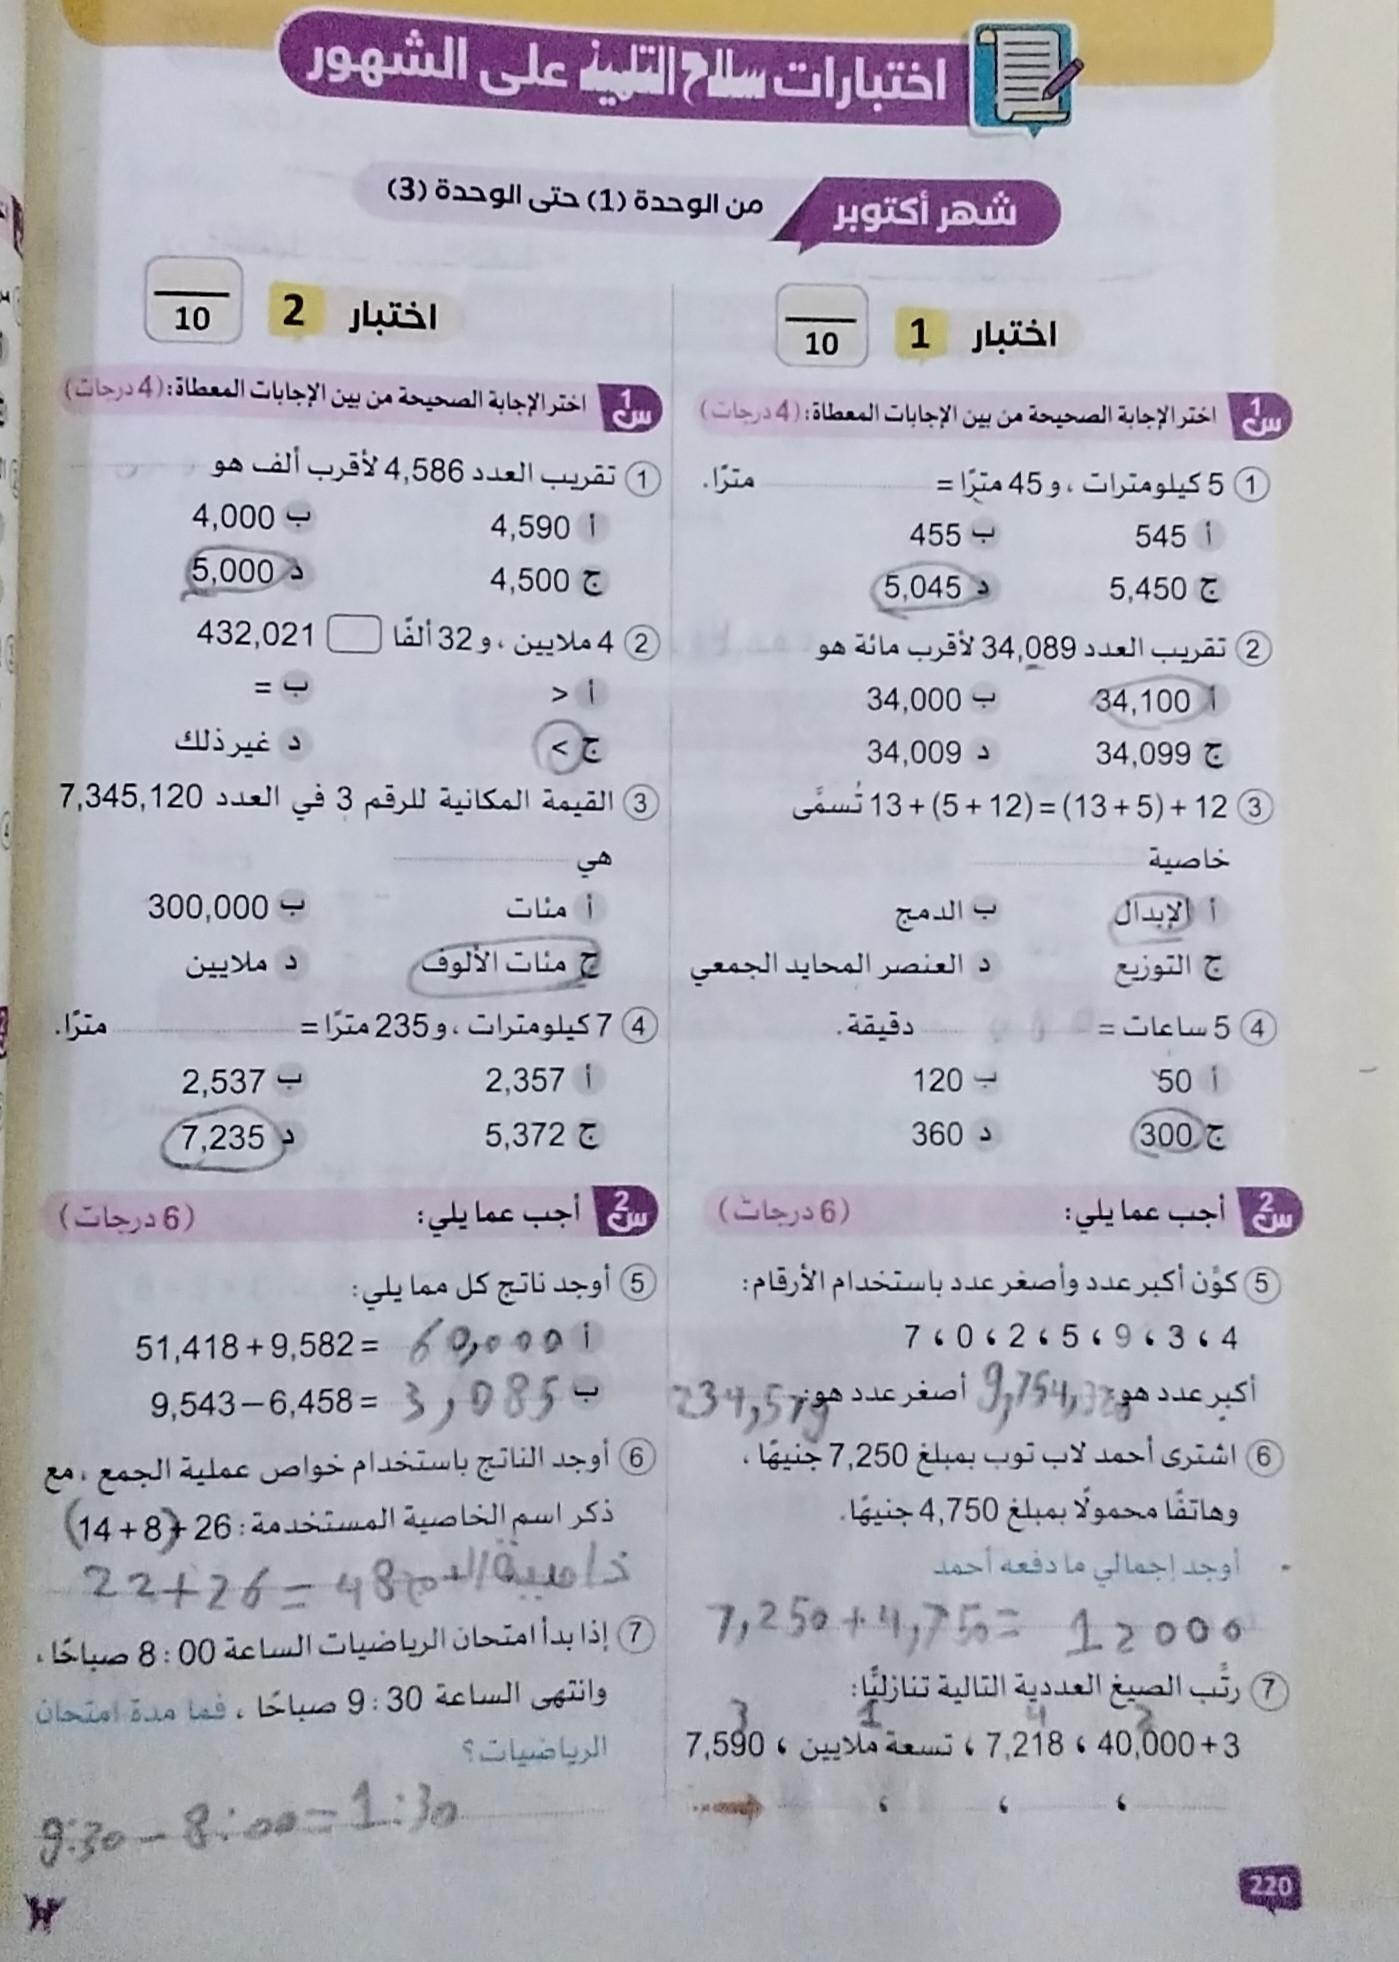 اختبارات سلاح التلميذ على الشهور
شهر أكتوبر
من الوحدة (1) حتى الوحدة (3)
اختبار 1
10
س1 اختر الإجابة الصحيحة من بين الإجابات المعطاة: (4 درجات)
1 5 كيلومترات ، و 45 مترًا = مترًا.
أ 545 ب 455
ج 5,450 د 5,045
2 تقريب العدد 34,089 لأقرب مائة هو
أ 34,100 ب 34,000
ج 34,099 د 34,009
3 12 + (5 + 13) = (12 + 5) + 13 تُسمَّى
خاصية
أ الإبدال ب الدمج
ج التوزيع د العنصر المحايد الجمعي
4 5 ساعات = دقيقة.
أ 50 ب 120
ج 300 د 360
س2 أجب عما يلي: (6 درجات)
5 كوِّن أكبر عدد وأصغر عدد باستخدام الأرقام:
4 ، 3 ، 9 ، 5 ، 2 ، 0 ، 7
أكبر عدد هو: أصغر عدد هو:
6 اشترى أحمد لاب توب بمبلغ 7,250 جنيهًا ،
وهاتفًا محمولًا بمبلغ 4,750 جنيهًا.
أوجد إجمالي ما دفعه أحمد
7,250 + 4,750 = 12000
7 رتِّب الصيغ العددية التالية تنازليًّا:
3 1 4 2
40,000 + 3 ، 7,218 ، تسعة ملايين ، 7,590
، ، ،
اختبار 2
10
س1 اختر الإجابة الصحيحة من بين الإجابات المعطاة: (4 درجات)
1 تقريب العدد 4,586 لأقرب ألف هو
أ 4,590 ب 4,000
ج 4,500 د 5,000
2 4 ملايين ، و 32 ألفًا 432,021
أ > ب =
ج < د غير ذلك
3 القيمة المكانية للرقم 3 في العدد 7,345,120
هي
أ مئات ب 300,000
ج مئات الألوف د ملايين
4 7 كيلومترات ، و 235 مترًا = مترًا.
أ 2,357 ب 2,537
ج 5,372 د 7,235
س2 أجب عما يلي: (6 درجات)
5 أوجد ناتج كل مما يلي:
أ 51,418 + 9,582 = 60,000
ب 9,543 – 6,458 = 3,085
6 أوجد الناتج باستخدام خواص عملية الجمع ، مع
ذكر اسم الخاصية المستخدمة: (14 + 8) + 26
22 + 26 = 48 خاصية
7 إذا بدأ امتحان الرياضيات الساعة 8 : 00 صباحًا ،
وانتهى الساعة 9 : 30 صباحًا ، فما مدة امتحان
الرياضيات؟
9:30 – 8:00 = 1:30
220